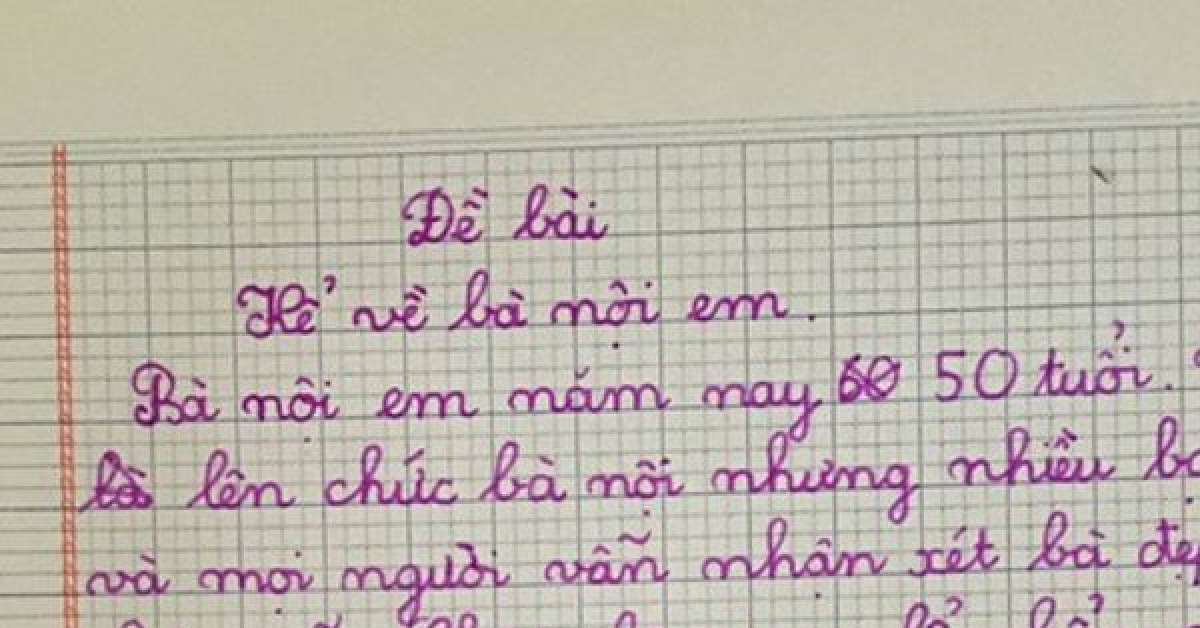 Đề bài
Kể về bà nội em.
Bà nội em năm nay 50 tuổi.
lên chức bà nội nhưng nhiều
và mọi người vẫn nhận xét bà